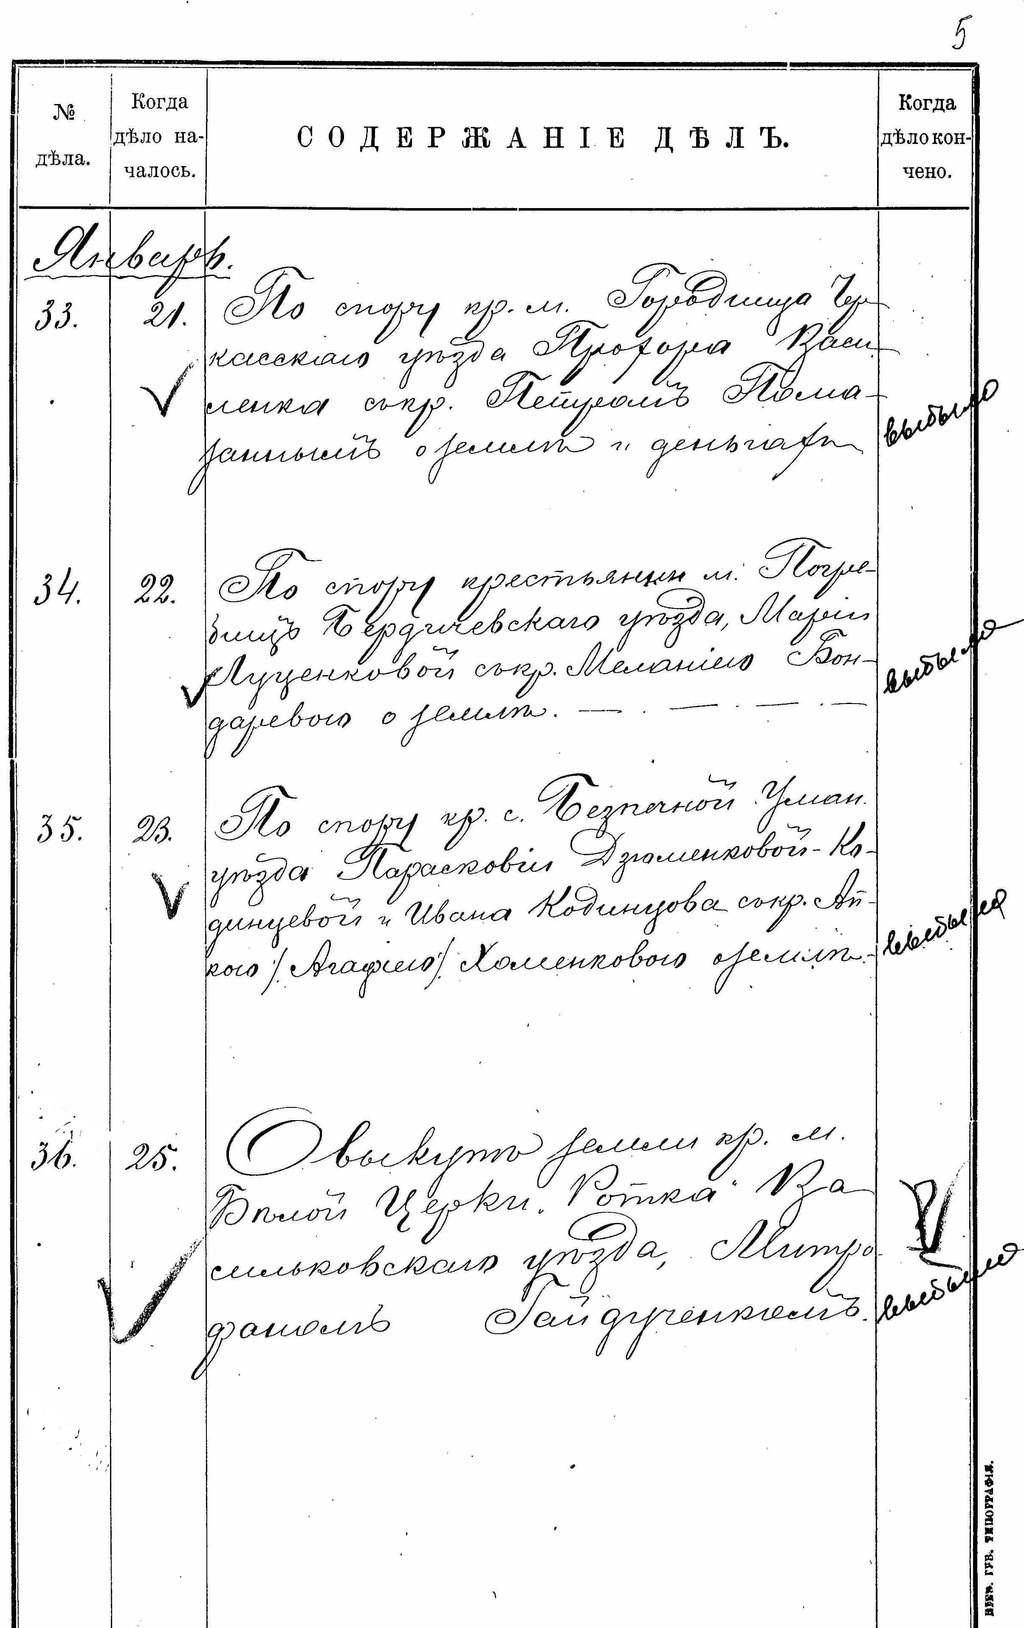 5
№ дѣла.
Когда дѣло на-
чалось.
СОДЕРЖАНІЕ ДѢЛЪ.
Когда дѣло кон-
чено.
Январь.
33. 21. По спору кр. м. Городища Чер-
касскаго уѣзда Прохора Васи-
ленка съ кр. Петромъ Пома-
заннымъ о землѣ и деньгахъ
выбыло
34. 22. По спору крестьянки м. Погре-
бищъ Бердичевскаго уѣзда, Маріи
Луценковой съ кр. Меланіею Бон-
даревою о землѣ.
выбыло
35. 23. По спору кр. с. Безпечной Уман.
уѣзда Парасковіи Дзюменковой-Ко-
динцевой и Ивана Кодинцова съ кр.
кою /Агафіею/ Хоменковою о землѣ.
выбыло
36. 25. О выкупѣ земли кр. м.
Бѣлой Церкви „Ротка" Ва
сильковскаго уѣзда, Митро
фаномъ Гайдученкомъ.
выбыло
КІЕВ. ГУБ. ТИПОГРАФІЯ.